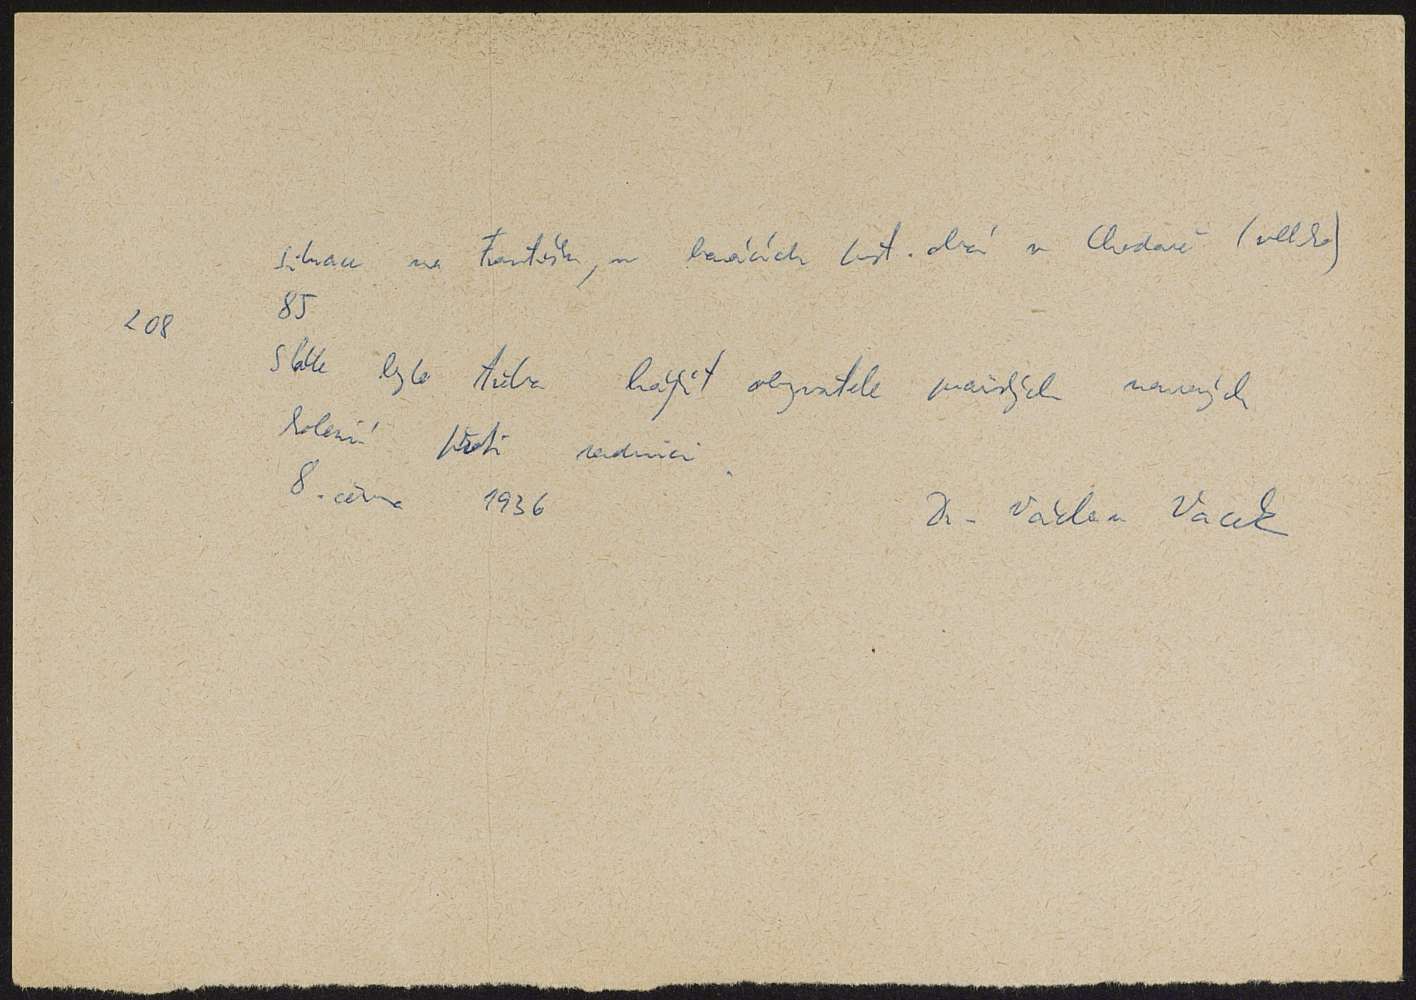 situace na Františku, v barácích u st. drá v Chodově (velká)
85
208
Stále bylo třeba hájit obyvatele pražských nouzových
kolonií proti radnici.
8. června 1936 Dr. Václav Vacek